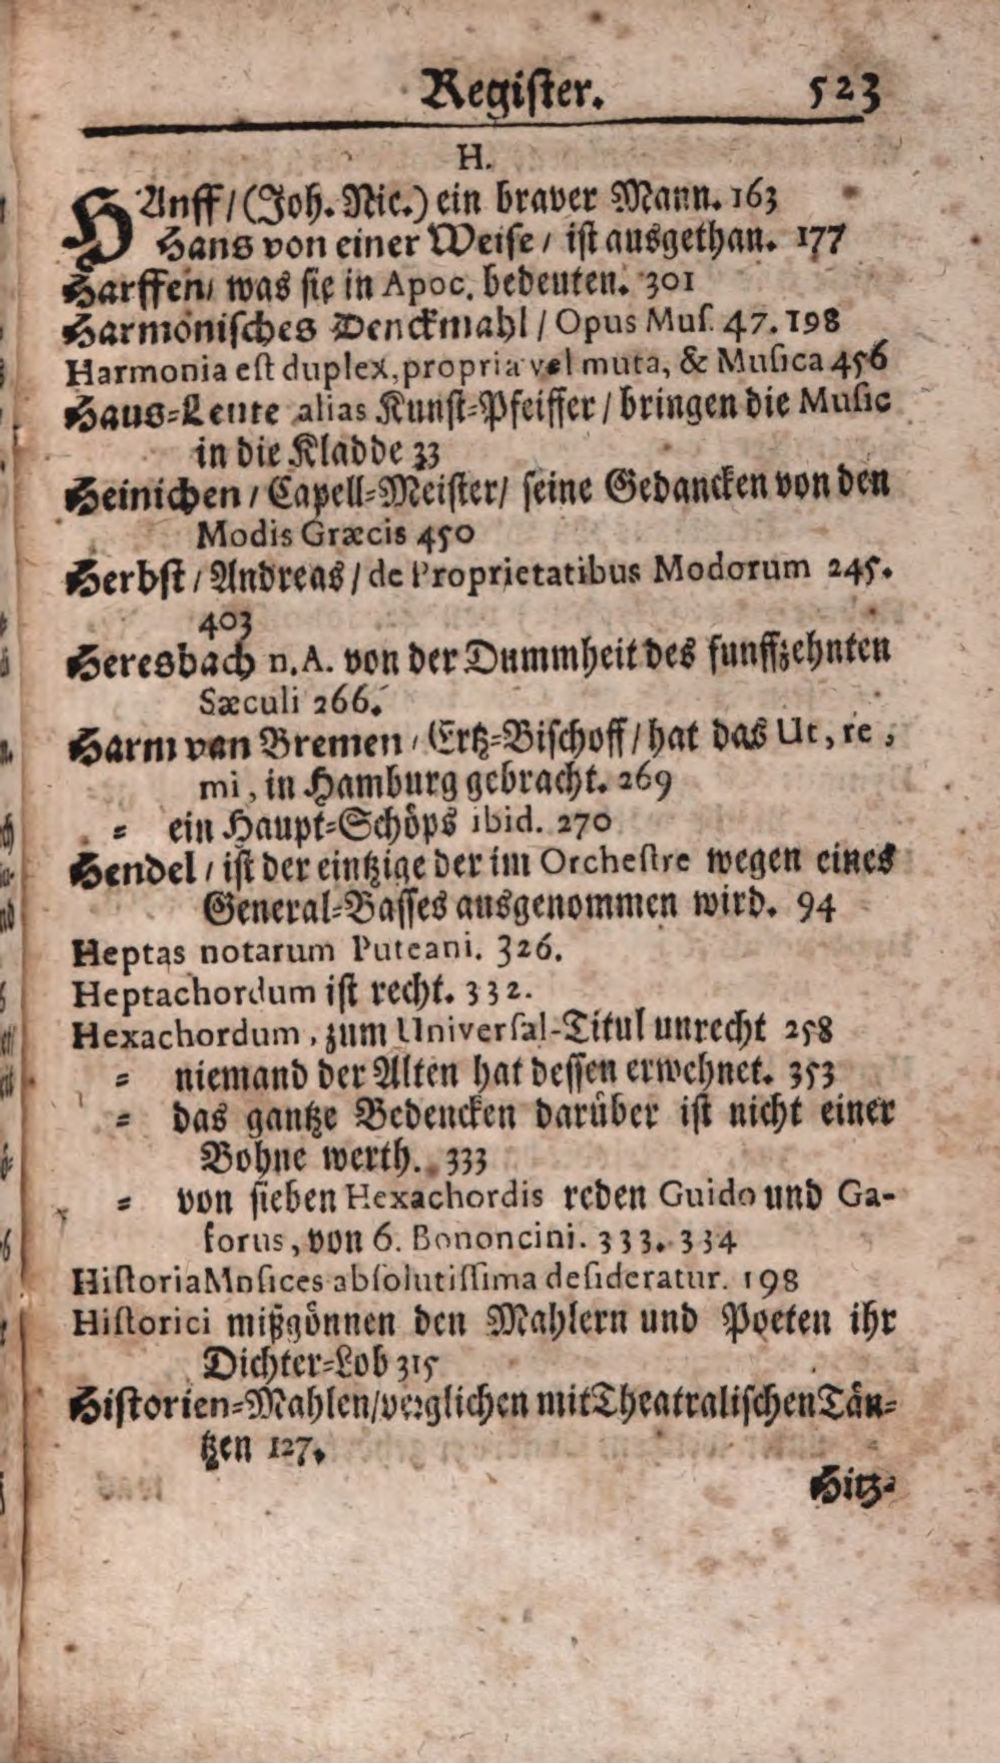 Register. 523
H.
HAnff/ (Joh. Nic.) ein braver Mann. 163
Hans von einer Weise/ ist ausgethan. 177
Harffen/ was sie in Apoc. bedeuten. 301
Harmonisches Denckmahl/ Opus Muſ. 47. 198
Harmonia eſt duplex, propria vel muta, & Muſica 456
Haus-Leute alias Kunſt-Pfeiffer/ bringen die Muſic
in die Kladde 33
Heinichen/ Capell-Meiſter/ ſeine Gedancken von den
Modis Græcis 450
Herbſt/ Andreas/ de Proprietatibus Modorum 245.
403
Heresbach n. A. von der Dummheit des funffzehnten
Sæculi 266.
Harm van Bremen/ Ertz-Biſchoff/ hat das Ut, re,
mi, in Hamburg gebracht. 269
= ein Haupt-Schöps ibid. 270
Hendel/ iſt der eintzige der im Orcheſtre wegen eines
General-Baſſes ausgenommen wird. 94
Heptas notarum Puteani. 326.
Heptachordum iſt recht. 332.
Hexachordum, zum Univerſal-Titul unrecht 258
= niemand der Alten hat deſſen erwehnet. 353
= das gantze Bedencken darüber iſt nicht einer
Bohne werth. 333
= von ſieben Hexachordis reden Guido und Ga-
forus, von 6. Bononcini. 333. 334
Hiſtoria Muſices abſolutiſſima deſideratur. 198
Hiſtorici mißgönnen den Mahlern und Poeten ihr
Dichter-Lob 315
Hiſtorien-Mahlen/ verglichen mit Theatraliſchen Tän-
tzen 127.
Hitz-